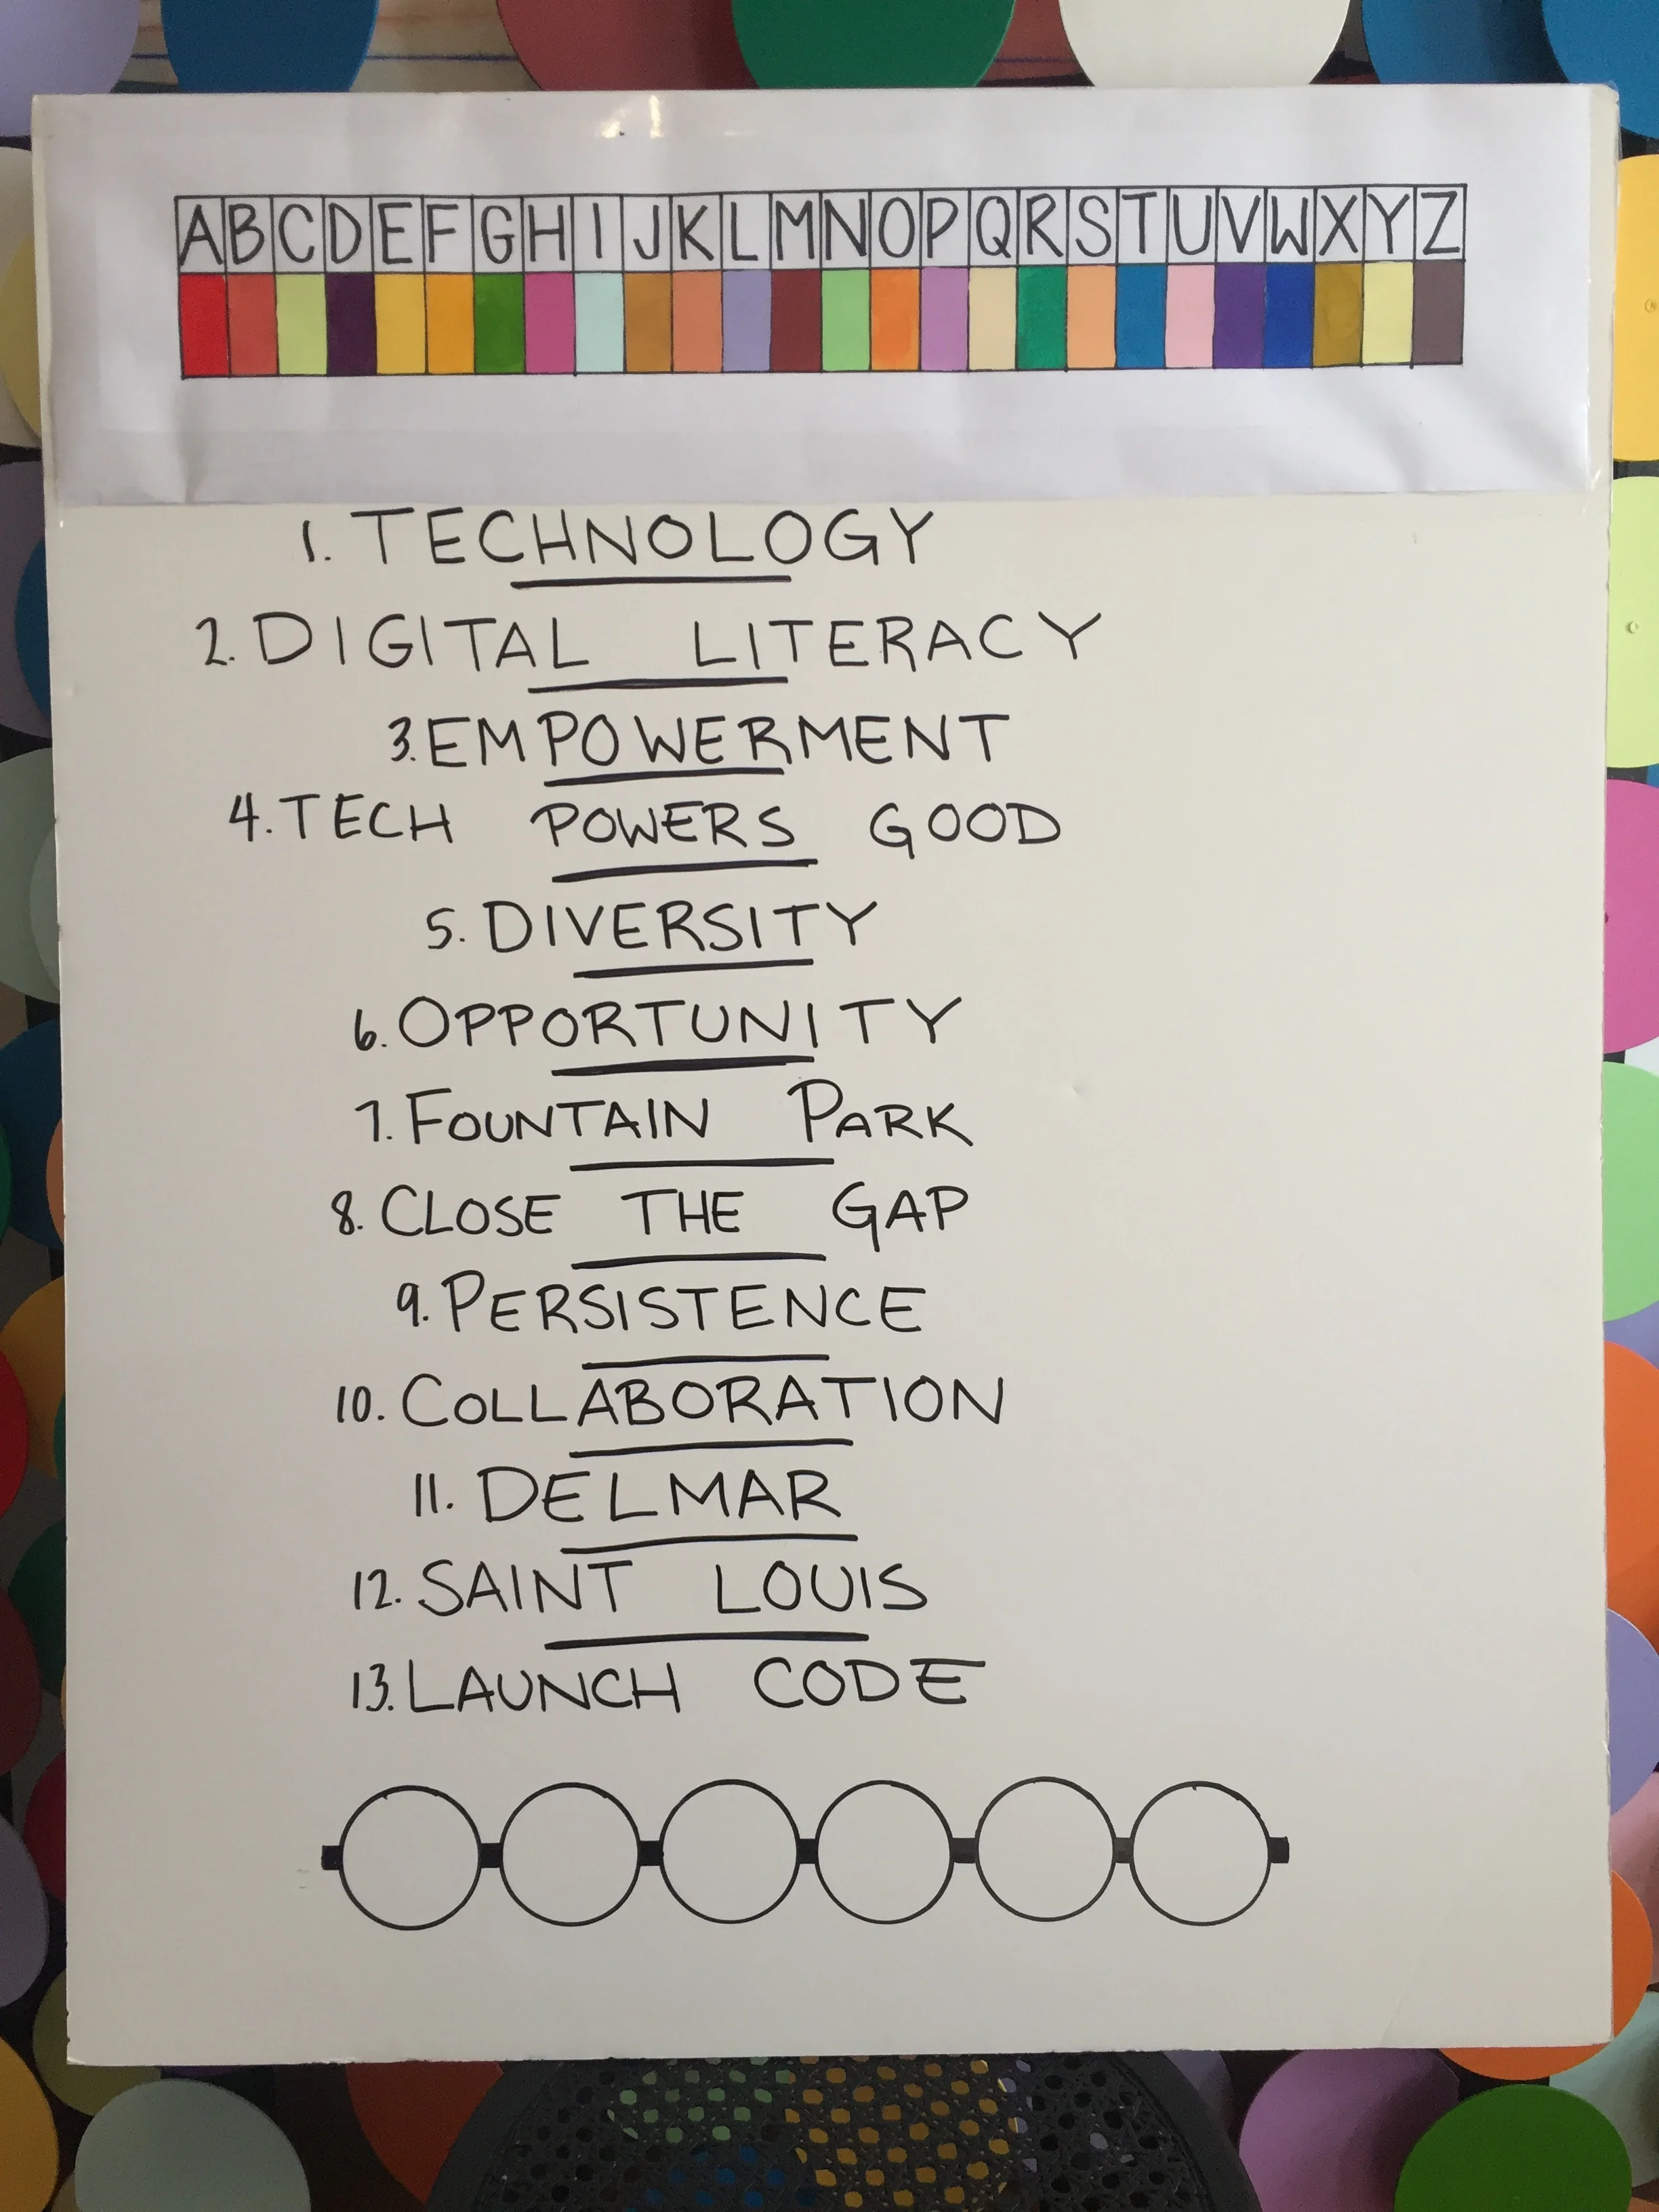 A B C D E F G H I J K L M N O P Q R S T U V W X Y Z
1. TECHNOLOGY
2. DIGITAL LITERACY
3. EMPOWERMENT
4. TECH POWERS GOOD
5. DIVERSITY
6. OPPORTUNITY
7. FOUNTAIN PARK
8. CLOSE THE GAP
9. PERSISTENCE
10. COLLABORATION
11. DELMAR
12. SAINT LOUIS
13. LAUNCH CODE